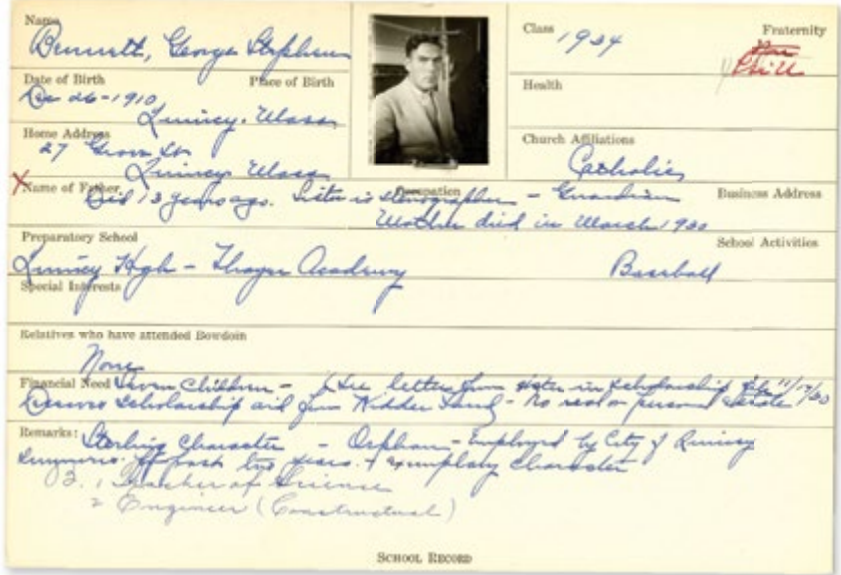 Name
Bennett, George Stephen
Class 1934
Fraternity
Date of Birth
Dec 26-1910
Place of Birth
Quincy, Mass
Health
Home Address
27 Grove St.
Quincy Mass
Church Affiliations
Catholic
X Name of Father
Died 13 years ago. Sister is stenographer - Guardian
Occupation
Business Address
Mother died in March 1930
Preparatory School
Quincy High - Thayer Academy
School Activities
Baseball
Special Interests
Relatives who have attended Bowdoin
None
Financial Need Seven Children - (See letter from sister in scholarship file 11/17/30
Deserves scholarship aid from Kidder Fund - No real or personal estate
Remarks: Sterling Character - Orphan - Employed by City of Quincy
Summers. past two years. exemplary character
1 Teacher of Science
2 Engineer (Constructural)
SCHOOL RECORD